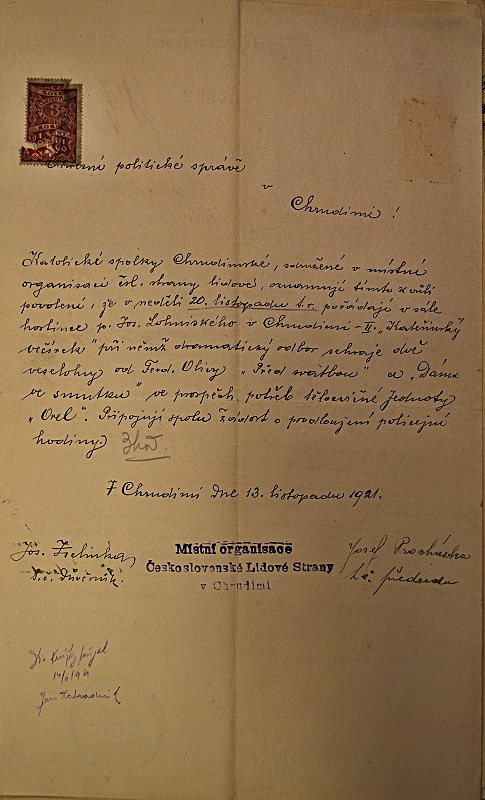 politické správě
v
Chrudimi!
Katolické spolky Chrudimské, sdružené v místní
organisaci čsl. strany lidové, oznamují tímto za účelem
povolení, že v neděli 20. listopadu t.r. pořádají v sále
hostince p. Jos. Lohniského v Chrudimi-II. „Kateřinský
večírek" při němž dramatický odbor sehraje dvě
veselohry od Ferd. Olivy „Před svatbou" a „Dáma
ve smutku" ve prospěch potřeb tělocvičné jednoty
„Orel". Připojují spolu žádost o prodloužení policejní
hodiny.
V Chrudimi dne 13. listopadu 1921.
Jos.
t.č. důvěrník.
Místní organisace
Československé Lidové Strany
v Chrudimi
Josef Procházka
t.č. předseda